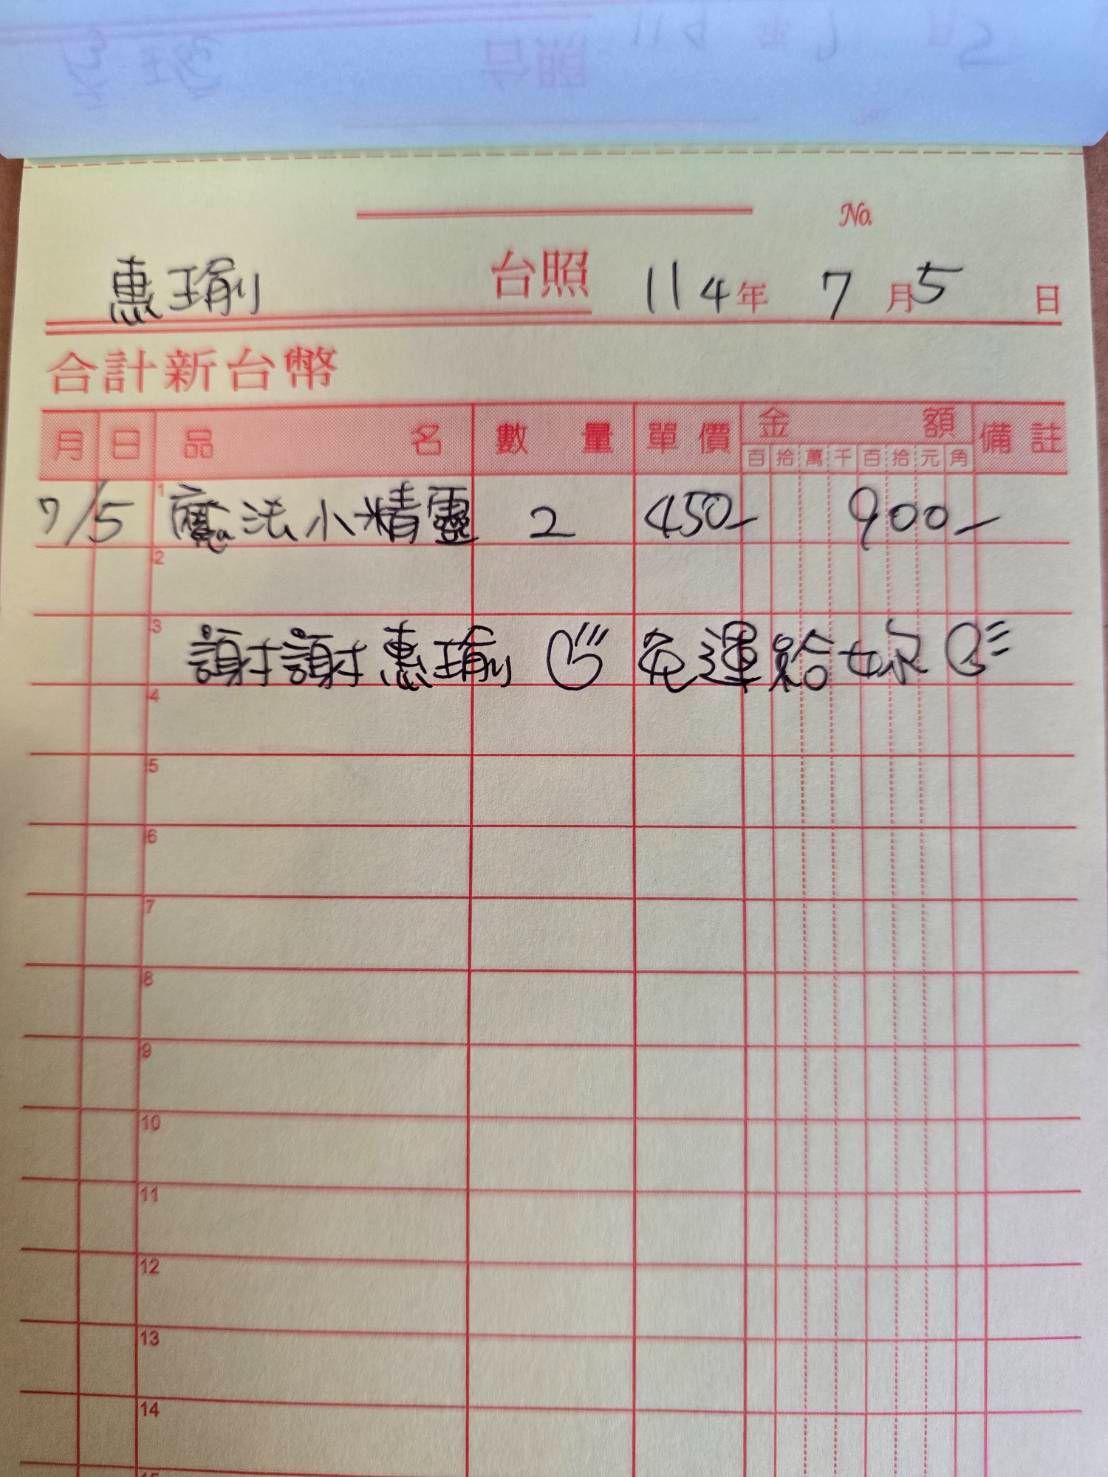 No.
惠瑜 台照 114年 7月5日
合計新台幣
月 日 品名 數量 單價 金額 備註
百 拾 萬 千 百 拾 元 角
7/5 1 魔法小精靈 2 450- 900-
2
3 謝謝惠瑜 免運給妳
4
5
6
7
8
9
10
11
12
13
14